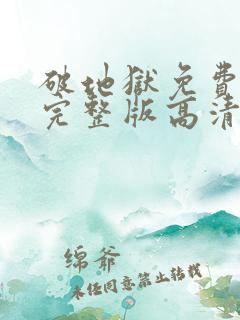 破地獄免費
完整版高清
绵爷
未经同意禁止转载